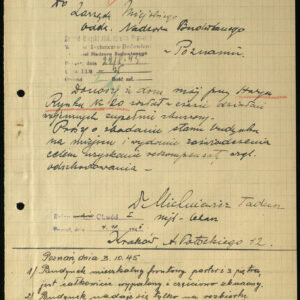 Do
Zarządu Miejskiego
oddz. Nadzoru Budowlanego
- Poznaniu.
Donoszę iż dom mój przy Starym
Rynku № 20 został w czasie działań
wojennych zupełnie zburzony.
Proszę o zbadanie stanu budynku
na miejscu i wydanie zaświadczenia
celem uzyskania rekompensaty wzgl.
odszkodowania. -
Dr Tadeusz
lekarz
Kraków A. Potockiego 12.
Poznań dnia 3.10.45
1) Budynek mieszkalny frontowy parter i 3 piętra,
jest całkowicie wypalony i częściowo zburzony.
2) Budynek nadaje się tylko na rozbiórkę